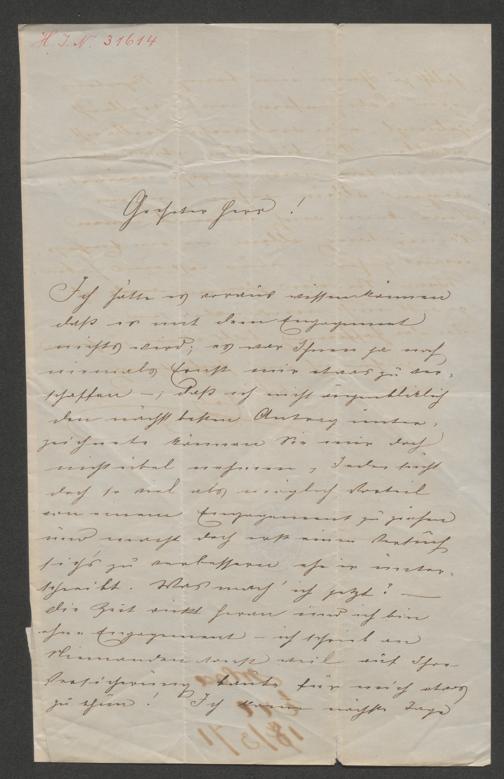 H. I. N. 31614
Geehrter Herr!
Ich hätte es voraus wissen können
daß es mit dem Engagement
nichts wird; es war Ihnen ja noch
niemals Ernst mir etwas zu ver-
schaffen –, daß ich nicht augenblicklich
den nächst besten Antrag unter-
zeichnete können Sie mir doch
nicht übel nehmen, Jeder sucht
doch so viel als möglich Vorteil
von einem Engagement zu ziehen
und macht doch erst einen Versuch
sich's zu verbessern ehe er unter-
schreibt. Was mach' ich jetzt? —
die Zeit rückt heran und ich bin
ohne Engagement – ich schrieb an
Niemanden sonst weil auf Ihre
Versicherung baute für mich etwas
zu thun! Ich komme nächster Tage
18/5 71